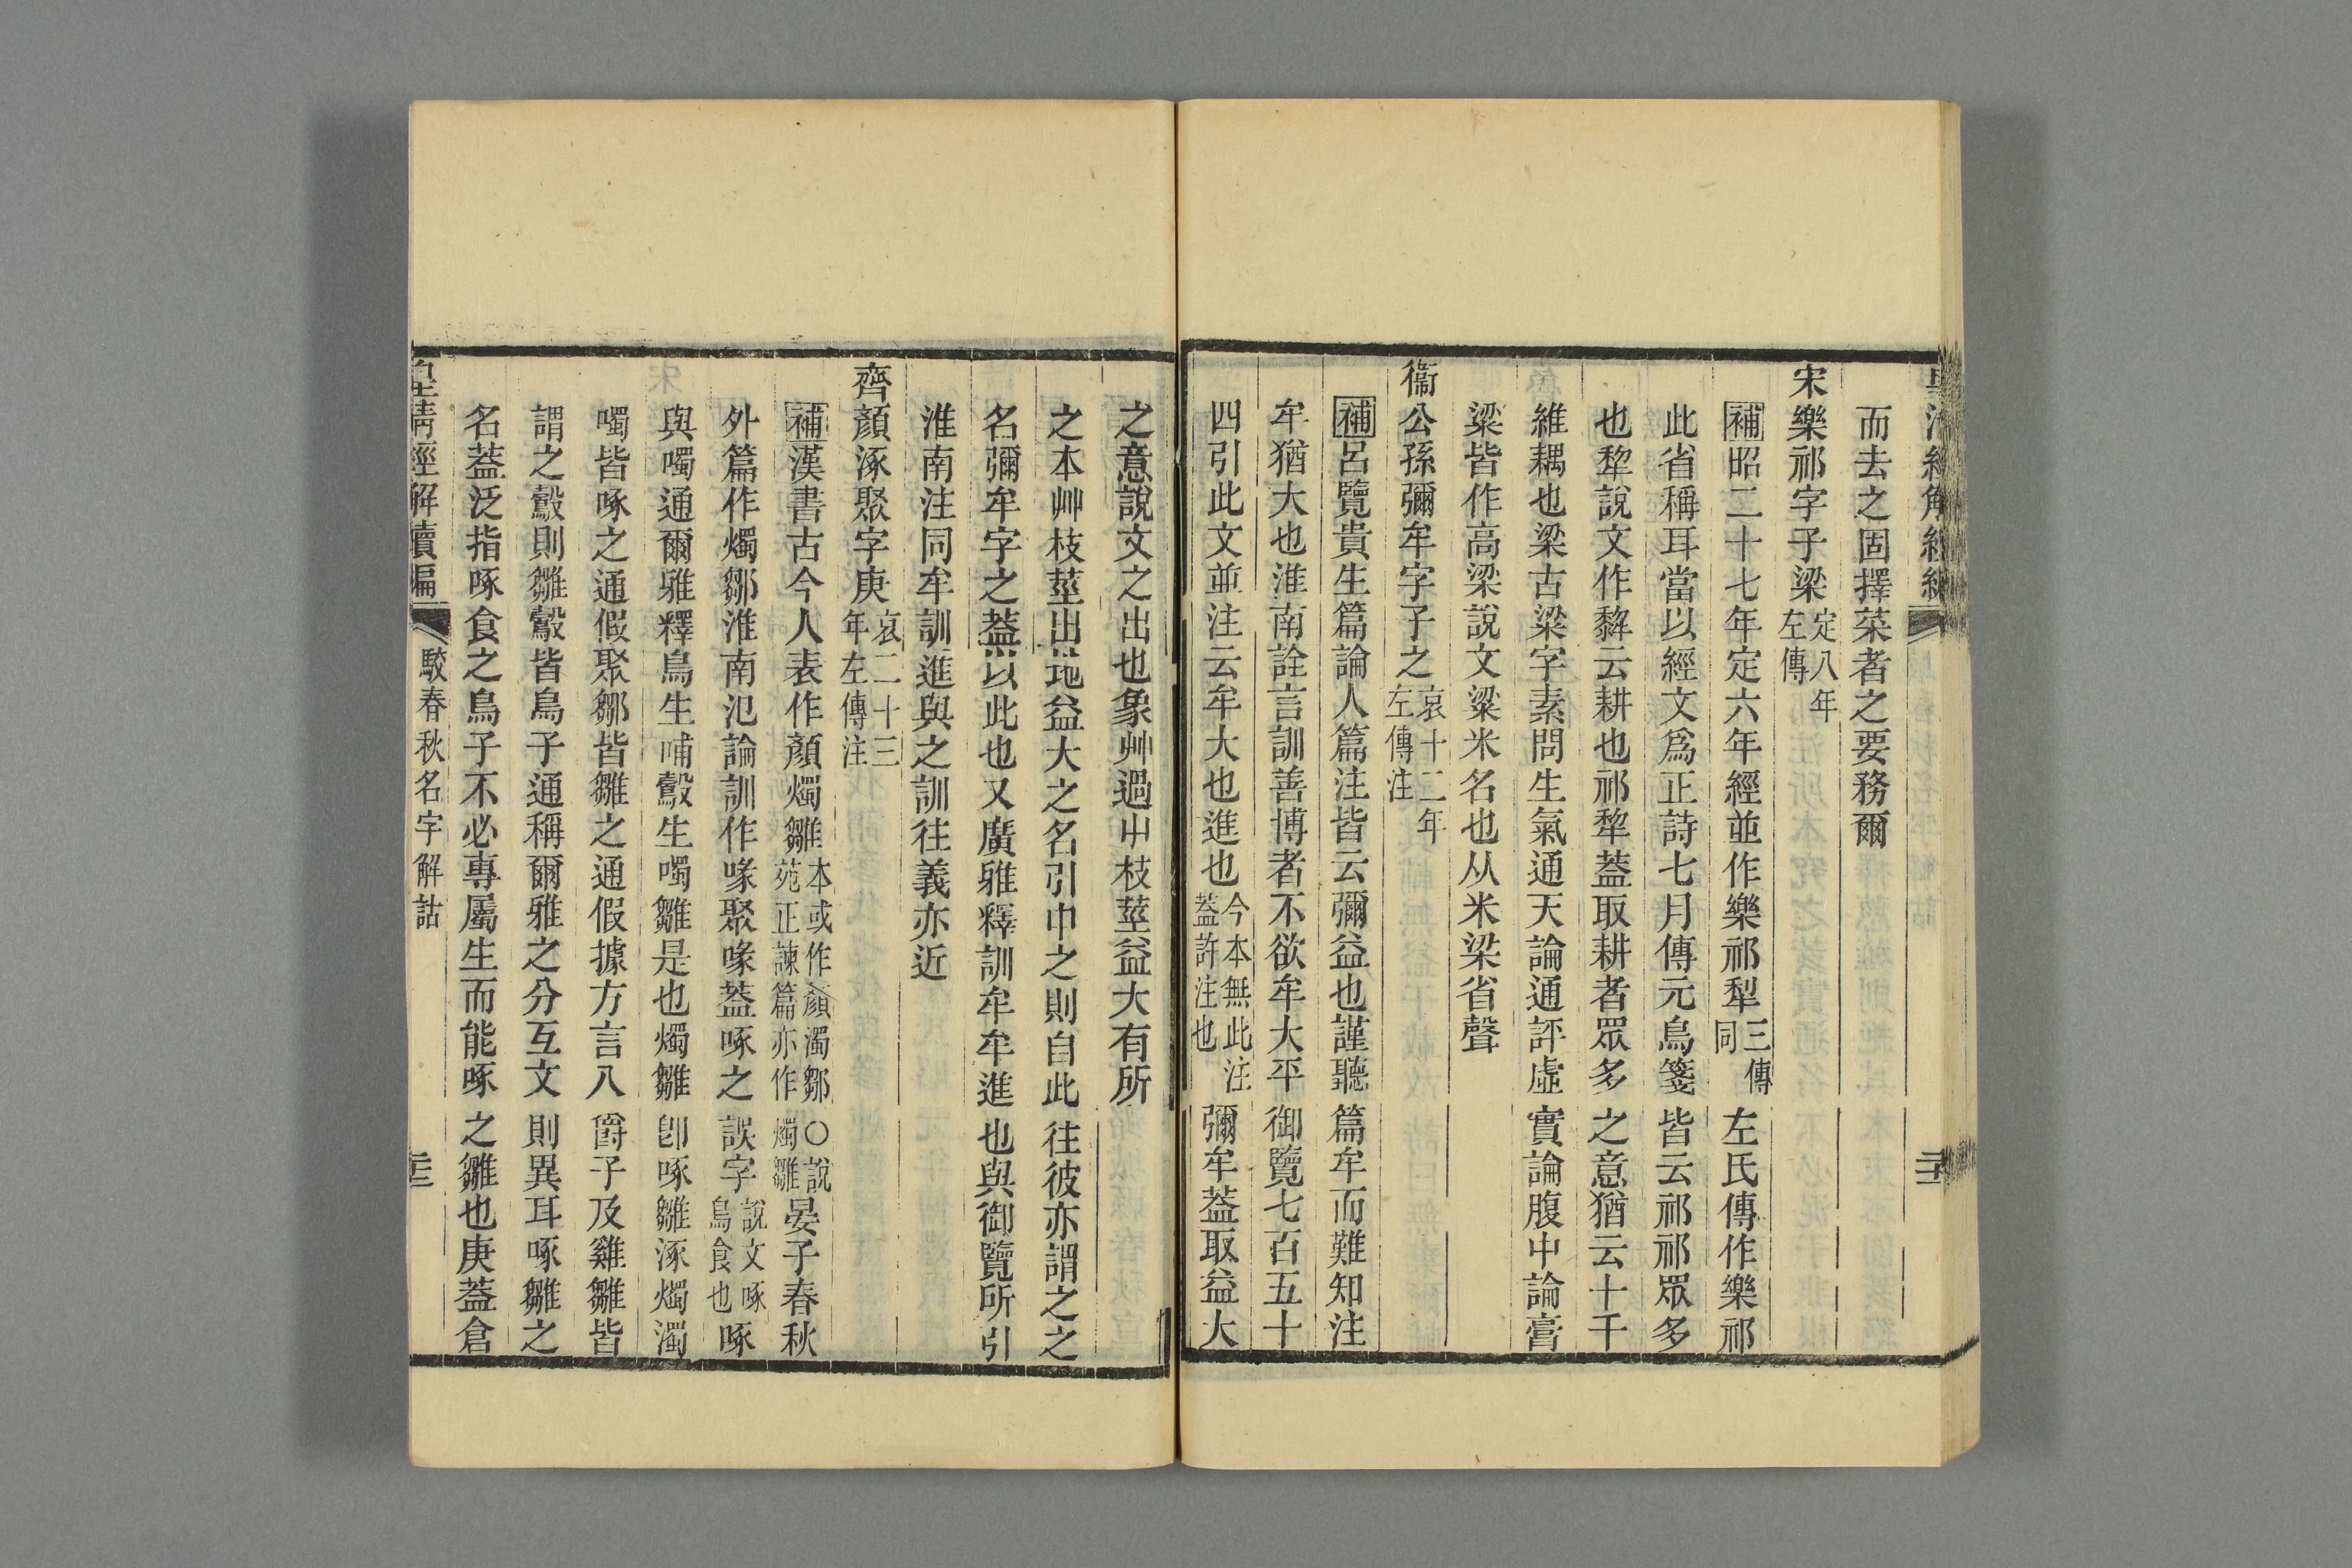 而去之固擇菜者之要務爾
宋樂祁字子梁定八年左傳
補昭二十七年定六年經並作樂祁犁三傳同左氏傳作樂祁
此省稱耳當以經文爲正詩七月傳元鳥箋皆云祁祁眾多
也犂說文作𤛿云耕也祁犂蓋取耕者眾多之意猶云十千
維耦也梁古粱字素問生氣通天論通評虛實論腹中論膏
粱皆作高梁說文粱米名也从米梁省聲
衞公孫彌牟字子之哀十二年左傳注
補呂覽貴生篇論人篇注皆云彌益也謹聽篇牟而難知注
牟猶大也淮南詮言訓善博者不欲牟大平御覽七百五十
四引此文並注云牟大也進也今本無此注蓋許注也彌牟蓋取益大
之意說文之出也象艸過屮枝莖益大有所
之本艸枝莖出地益大之名引中之則自此往彼亦謂之之
名彌牟字之蓋以此也又廣雅釋訓牟牟進也與御覽所引
淮南注同牟訓進與之訓往義亦近
齊顏涿聚字庚哀二十三年左傳注
補漢書古今人表作顏燭雛本或作顏濁鄒○說苑正諫篇亦作燭雛晏子春秋
外篇作燭鄒淮南氾論訓作喙聚喙蓋啄之誤字說文啄鳥食也啄
與噣通爾雅釋鳥生哺鷇生噣雛是也燭雛卽啄雛涿燭濁
噣皆啄之通假聚鄒皆雛之通假據方言八爵子及雞雛皆
謂之鷇則雛鷇皆鳥子通稱爾雅之分互文則異耳啄雛之
名蓋泛指啄食之鳥子不必專屬生而能啄之雛也庚蓋倉
皇清經解續編
駮春秋名字解詁